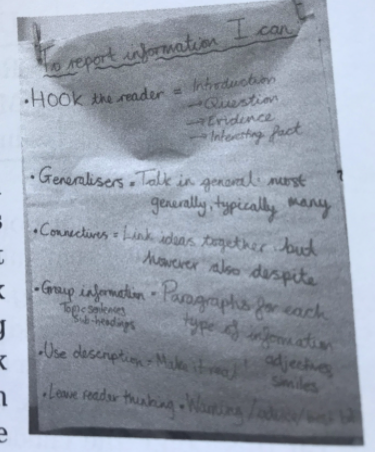 To report information I can
• HOOK the reader = Introduction
→ Question
→ Evidence
→ Interesting fact
• Generalisers = Talk in general most
generally, typically many
• Connectives = Link ideas together but
however also despite
• Group information = Paragraphs for each
Topic sentences type of information
Sub-headings
• Use description = Make it real! adjectives
similes
• Leave reader thinking = Warning / advice /